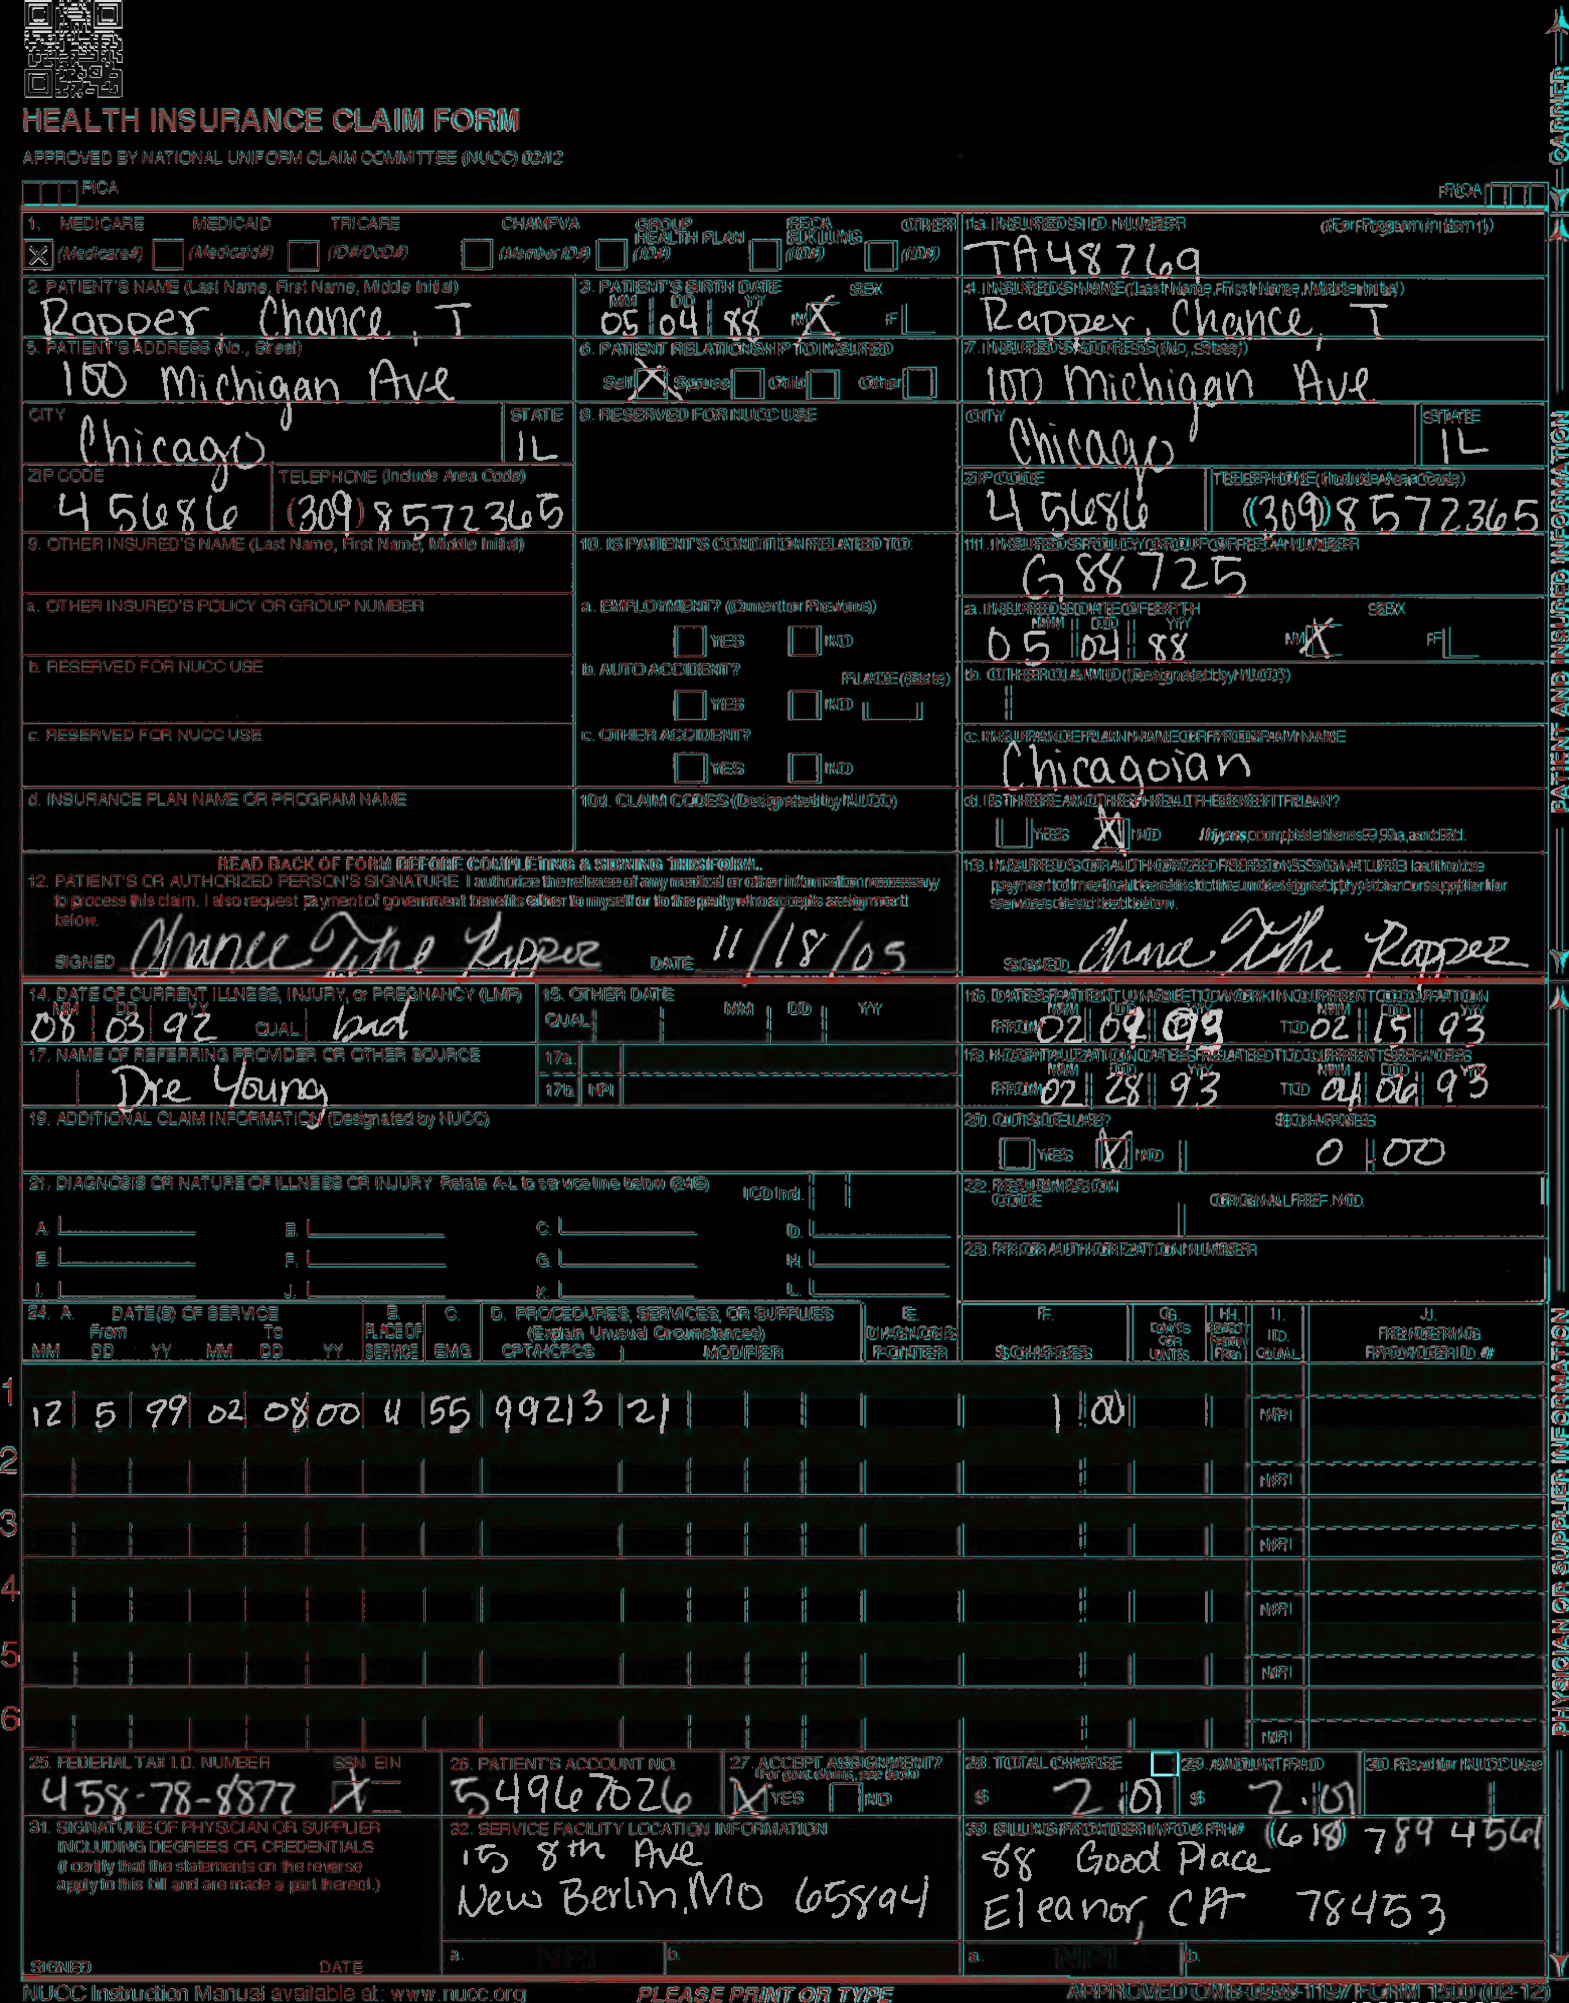 HEALTH INSURANCE CLAIM FORM
APPROVED BY NATIONAL UNIFORM CLAIM COMMITTEE (NUCC) 02/12
PICA
PICA
CARRIER
1. MEDICARE MEDICAID TRICARE CHAMPVA GROUP HEALTH PLAN FECA BLK LUNG OTHER
(Medicare#) (Medicaid#) (ID#/DoD#) (Member ID#) (ID#) (ID#) (ID#)
1a. INSURED'S I.D. NUMBER (For Program in Item 1)
TA48769
2. PATIENT'S NAME (Last Name, First Name, Middle Initial)
Rapper, Chance, T
3. PATIENT'S BIRTH DATE SEX
MM DD YY
05 04 88 M X F
4. INSURED'S NAME (Last Name, First Name, Middle Initial)
Rapper, Chance, T
5. PATIENT'S ADDRESS (No., Street)
100 Michigan Ave
6. PATIENT RELATIONSHIP TO INSURED
Self X Spouse Child Other
7. INSURED'S ADDRESS (No., Street)
100 Michigan Ave
CITY STATE
Chicago IL
8. RESERVED FOR NUCC USE
CITY STATE
Chicago IL
ZIP CODE TELEPHONE (Include Area Code)
45686 (309) 8572365
ZIP CODE TELEPHONE (Include Area Code)
45686 (309) 8572365
9. OTHER INSURED'S NAME (Last Name, First Name, Middle Initial)
10. IS PATIENT'S CONDITION RELATED TO:
11. INSURED'S POLICY GROUP OR FECA NUMBER
G88725
a. OTHER INSURED'S POLICY OR GROUP NUMBER
a. EMPLOYMENT? (Current or Previous)
YES NO
a. INSURED'S DATE OF BIRTH SEX
MM DD YY
05 04 88 M X F
b. RESERVED FOR NUCC USE
b. AUTO ACCIDENT? PLACE (State)
YES NO
b. OTHER CLAIM ID (Designated by NUCC)
c. RESERVED FOR NUCC USE
c. OTHER ACCIDENT?
YES NO
c. INSURANCE PLAN NAME OR PROGRAM NAME
Chicagoian
d. INSURANCE PLAN NAME OR PROGRAM NAME
10d. CLAIM CODES (Designated by NUCC)
d. IS THERE ANOTHER HEALTH BENEFIT PLAN?
YES X NO If yes, complete items 9, 9a, and 9d.
READ BACK OF FORM BEFORE COMPLETING & SIGNING THIS FORM.
12. PATIENT'S OR AUTHORIZED PERSON'S SIGNATURE I authorize the release of any medical or other information necessary
to process this claim. I also request payment of government benefits either to myself or to the party who accepts assignment
below.
SIGNED Chance The Rapper DATE 11/18/05
13. INSURED'S OR AUTHORIZED PERSON'S SIGNATURE I authorize
payment of medical benefits to the undersigned physician or supplier for
services described below.
SIGNED Chance The Rapper
PATIENT AND INSURED INFORMATION
14. DATE OF CURRENT ILLNESS, INJURY, or PREGNANCY (LMP)
MM DD YY
08 03 92 QUAL. bad
15. OTHER DATE
QUAL. MM DD YY
16. DATES PATIENT UNABLE TO WORK IN CURRENT OCCUPATION
MM DD YY MM DD YY
FROM 02 09 93 TO 02 15 93
17. NAME OF REFERRING PROVIDER OR OTHER SOURCE
Dre Young
17a.
17b. NPI
18. HOSPITALIZATION DATES RELATED TO CURRENT SERVICES
MM DD YY MM DD YY
FROM 02 28 93 TO 06 93
19. ADDITIONAL CLAIM INFORMATION (Designated by NUCC)
20. OUTSIDE LAB? $ CHARGES
YES X NO 0 00
21. DIAGNOSIS OR NATURE OF ILLNESS OR INJURY Relate A-L to service line below (24E) ICD Ind.
A. B. C. D.
E. F. G. H.
I. J. K. L.
22. RESUBMISSION CODE ORIGINAL REF. NO.
23. PRIOR AUTHORIZATION NUMBER
24. A. DATE(S) OF SERVICE B. C. D. PROCEDURES, SERVICES, OR SUPPLIES E. F. G. H. I. J.
From To PLACE OF (Explain Unusual Circumstances) DIAGNOSIS DAYS OR UNITS ID. RENDERING
MM DD YY MM DD YY SERVICE EMG CPT/HCPCS MODIFIER POINTER $ CHARGES QUAL. PROVIDER ID. #
1 12 5 99 02 08 00 55 99213 21 1 00 NPI
2 NPI
3 NPI
4 NPI
5 NPI
6 NPI
PHYSICIAN OR SUPPLIER INFORMATION
25. FEDERAL TAX I.D. NUMBER SSN EIN
458-78-8877 X
26. PATIENT'S ACCOUNT NO.
54967026
27. ACCEPT ASSIGNMENT?
(For govt. claims, see back)
X YES NO
28. TOTAL CHARGE
$ 2 01
29. AMOUNT PAID
$ 2.01
30. Rsvd for NUCC Use
31. SIGNATURE OF PHYSICIAN OR SUPPLIER
INCLUDING DEGREES OR CREDENTIALS
(I certify that the statements on the reverse
apply to this bill and are made a part thereof.)
SIGNED DATE
32. SERVICE FACILITY LOCATION INFORMATION
15 8th Ave
New Berlin, Mo 65894
a. NPI b.
33. BILLING PROVIDER INFO & PH# (618) 789 4561
88 Good Place
Eleanor, CA 78453
a. NPI b.
NUCC Instruction Manual available at: www.nucc.org
PLEASE PRINT OR TYPE
APPROVED OMB-0938-1197 FORM 1500 (02-12)